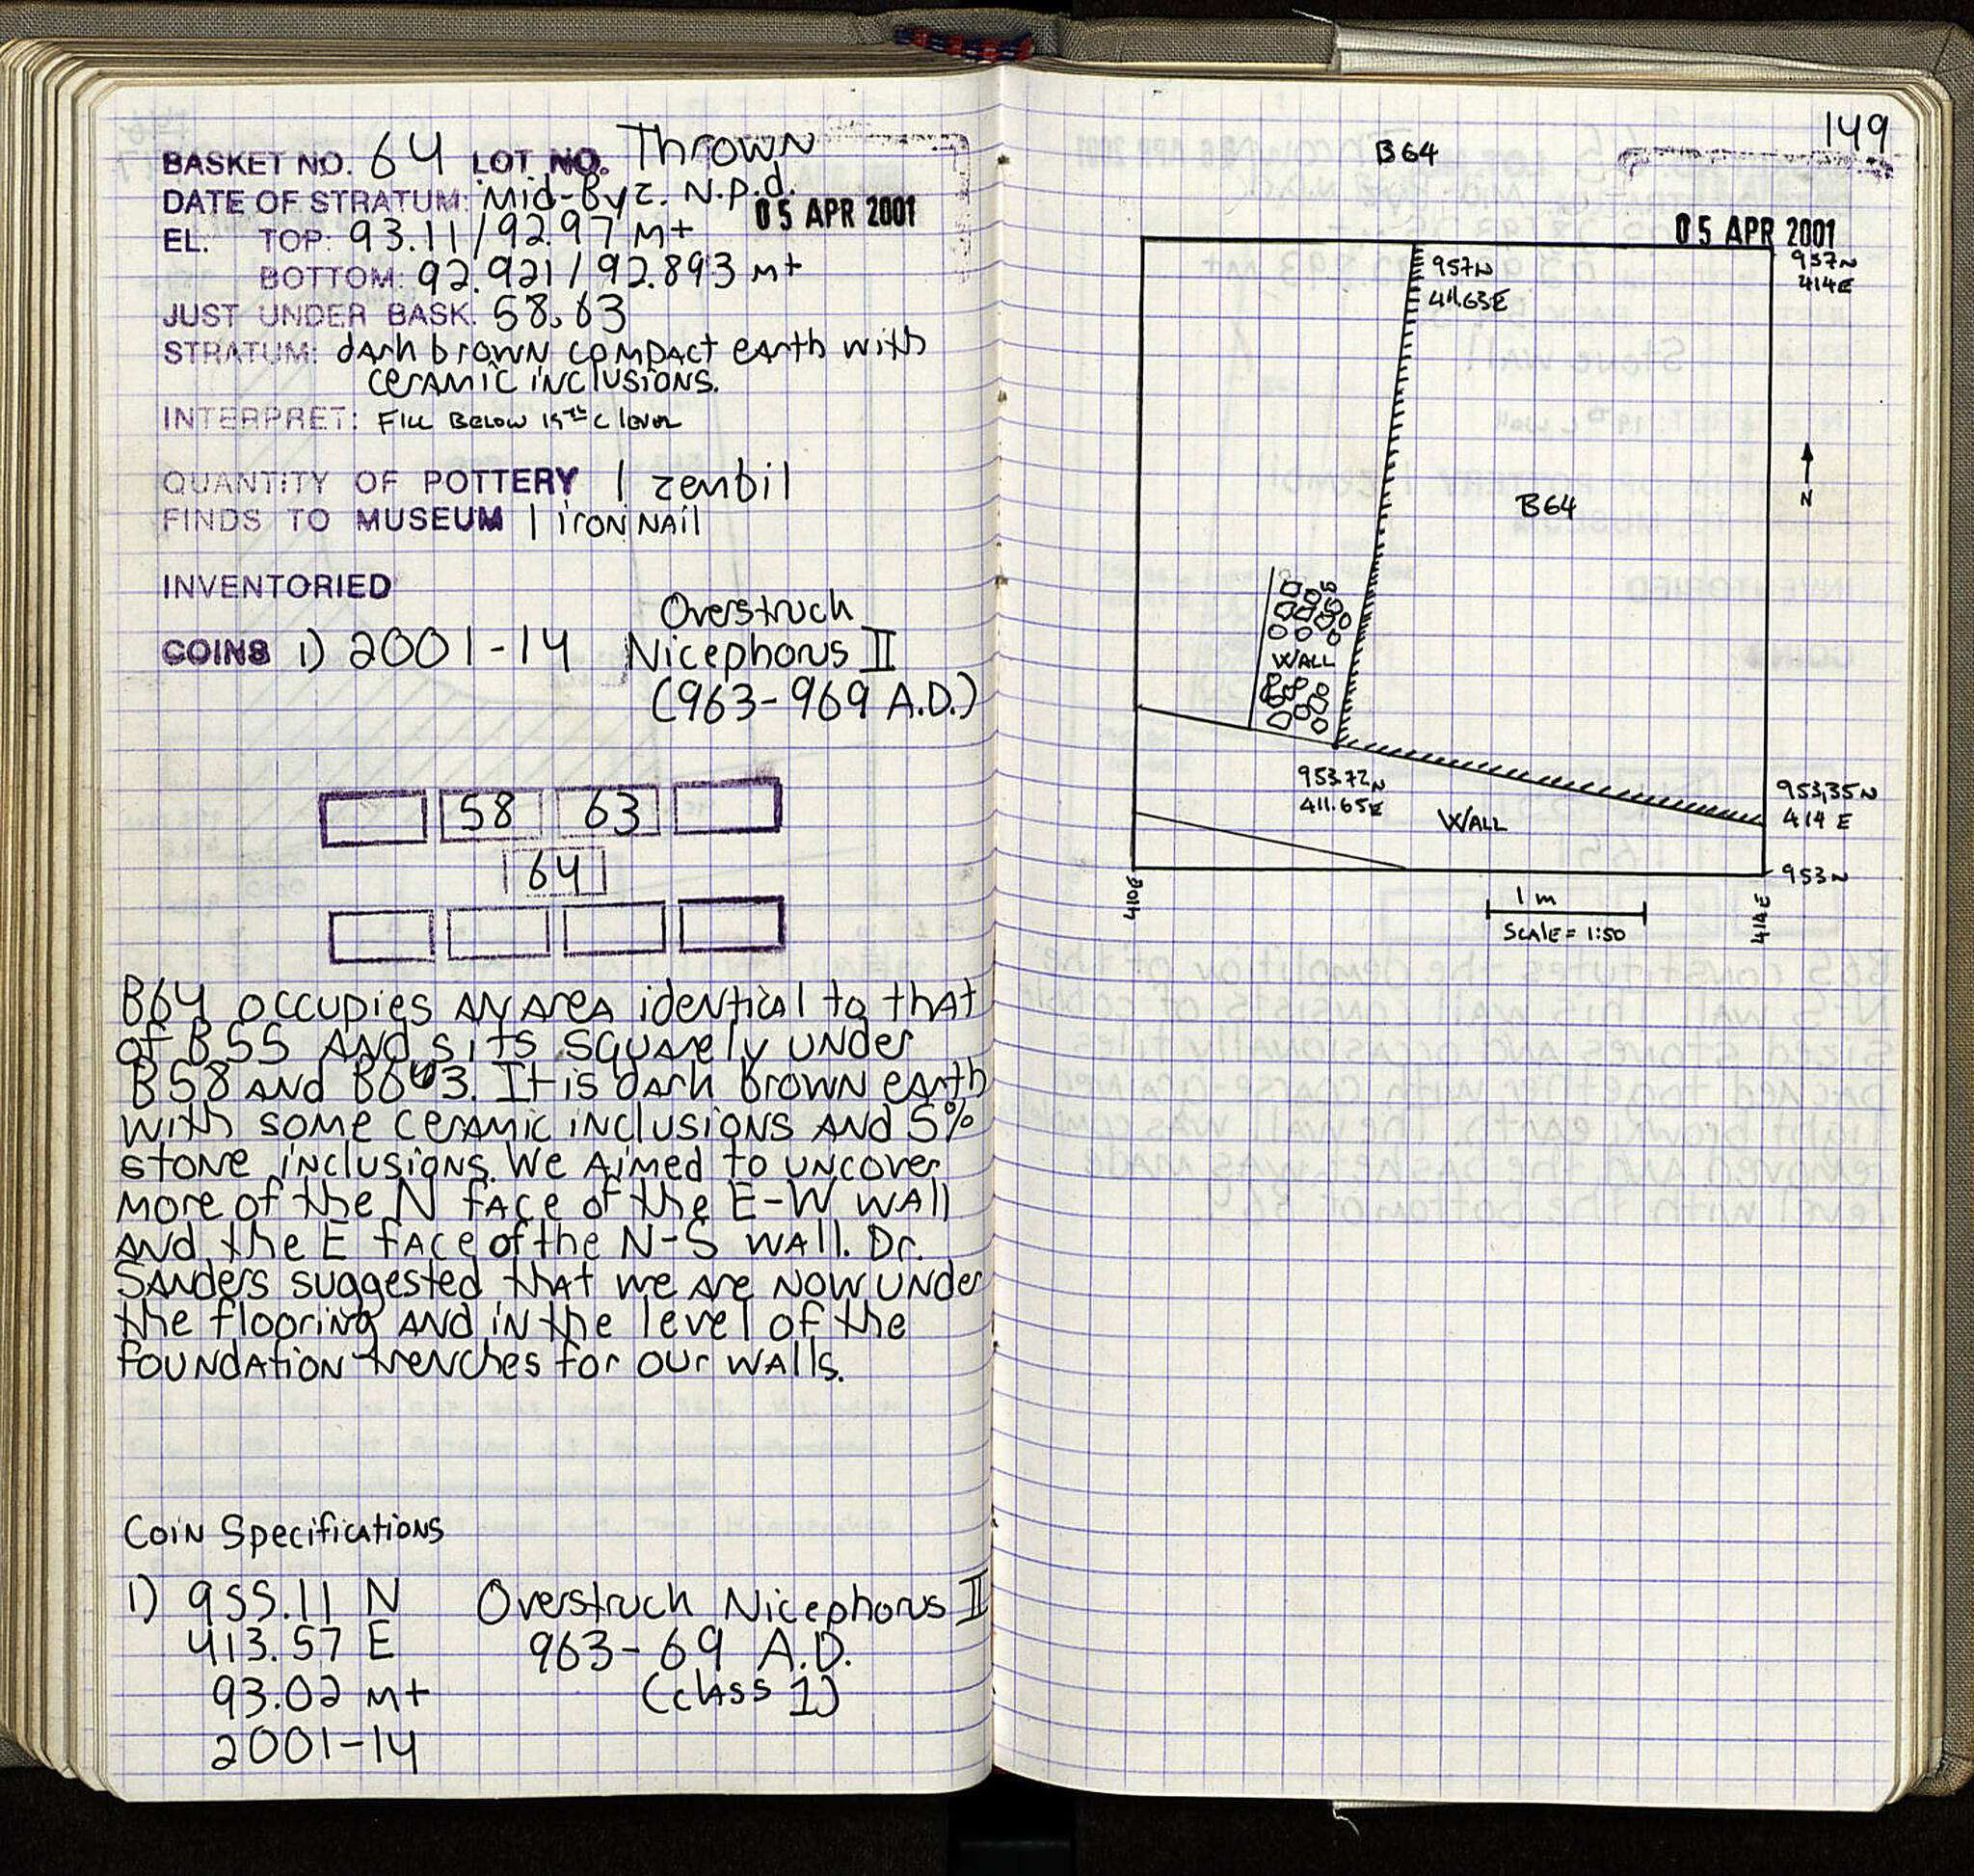 BASKET NO. 64 LOT NO. Thrown
DATE OF STRATUM: Mid-Byz. N.p.d.
05 APR 2001
EL. TOP: 93.11/92.97 m+
BOTTOM: 92.921/92.893 m+
JUST UNDER BASK. 58, 63
STRATUM: dark brown compact earth with
ceramic inclusions.
INTERPRET: Fill Below 19th C level
QUANTITY OF POTTERY 1 zembil
FINDS TO MUSEUM 1 iron nail
INVENTORIED
COINS 1) 2001-14 Overstruck
Nicephorus II
(963-969 A.D.)
58 63
64
B64 occupies an area identical to that
of B55 and sits squarely under
B58 and B63. It is dark brown earth
with some ceramic inclusions and 5%
stone inclusions. We aimed to uncover
more of the N face of the E-W wall
and the E face of the N-S wall. Dr.
Sanders suggested that we are now under
the flooring and in the level of the
foundation trenches for our walls.
Coin Specifications
1) 955.11 N Overstruck Nicephorus II
413.57 E 963-69 A.D.
93.02 m+ (class 1)
2001-14
149
B64
05 APR 2001
957N
411.63E
957N
414E
N
B64
WALL
953.72N
411.65E
WALL
953.35N
414 E
953N
410E
414E
1 m
Scale = 1:50